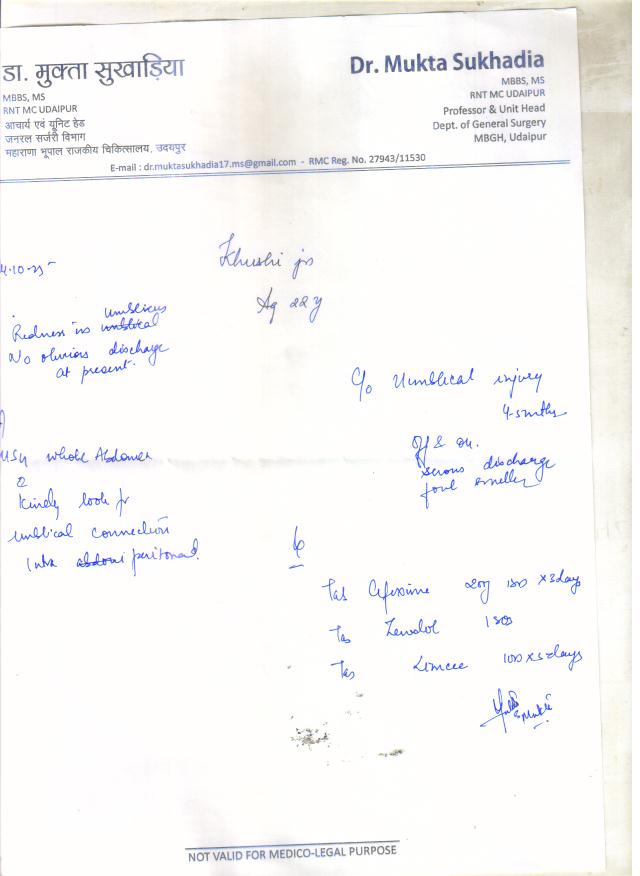 डा. मुक्ता सुखाड़िया
MBBS, MS
RNT MC UDAIPUR
आचार्य एवं यूनिट हेड
जनरल सर्जरी विभाग
महाराणा भूपाल राजकीय चिकित्सालय, उदयपुर
Dr. Mukta Sukhadia
MBBS, MS
RNT MC UDAIPUR
Professor & Unit Head
Dept. of General Surgery
MBGH, Udaipur
E-mail : dr.muktasukhadia17.ms@gmail.com - RMC Reg. No. 27943/11530
4.10.25
Khushi
Ag 22 y
umblicus
Redness in umblical
No obvious discharge
at present.
c/o Umblical injury
4-5 mths
off & on.
serous discharge
foul smelly
USG whole Abdomen
Kindly look for
umblical connection
intra peritoneal.
Tab Cefixime 200 x 3 days
Tab Zerodol
Tab Limcee x 5 days
NOT VALID FOR MEDICO-LEGAL PURPOSE